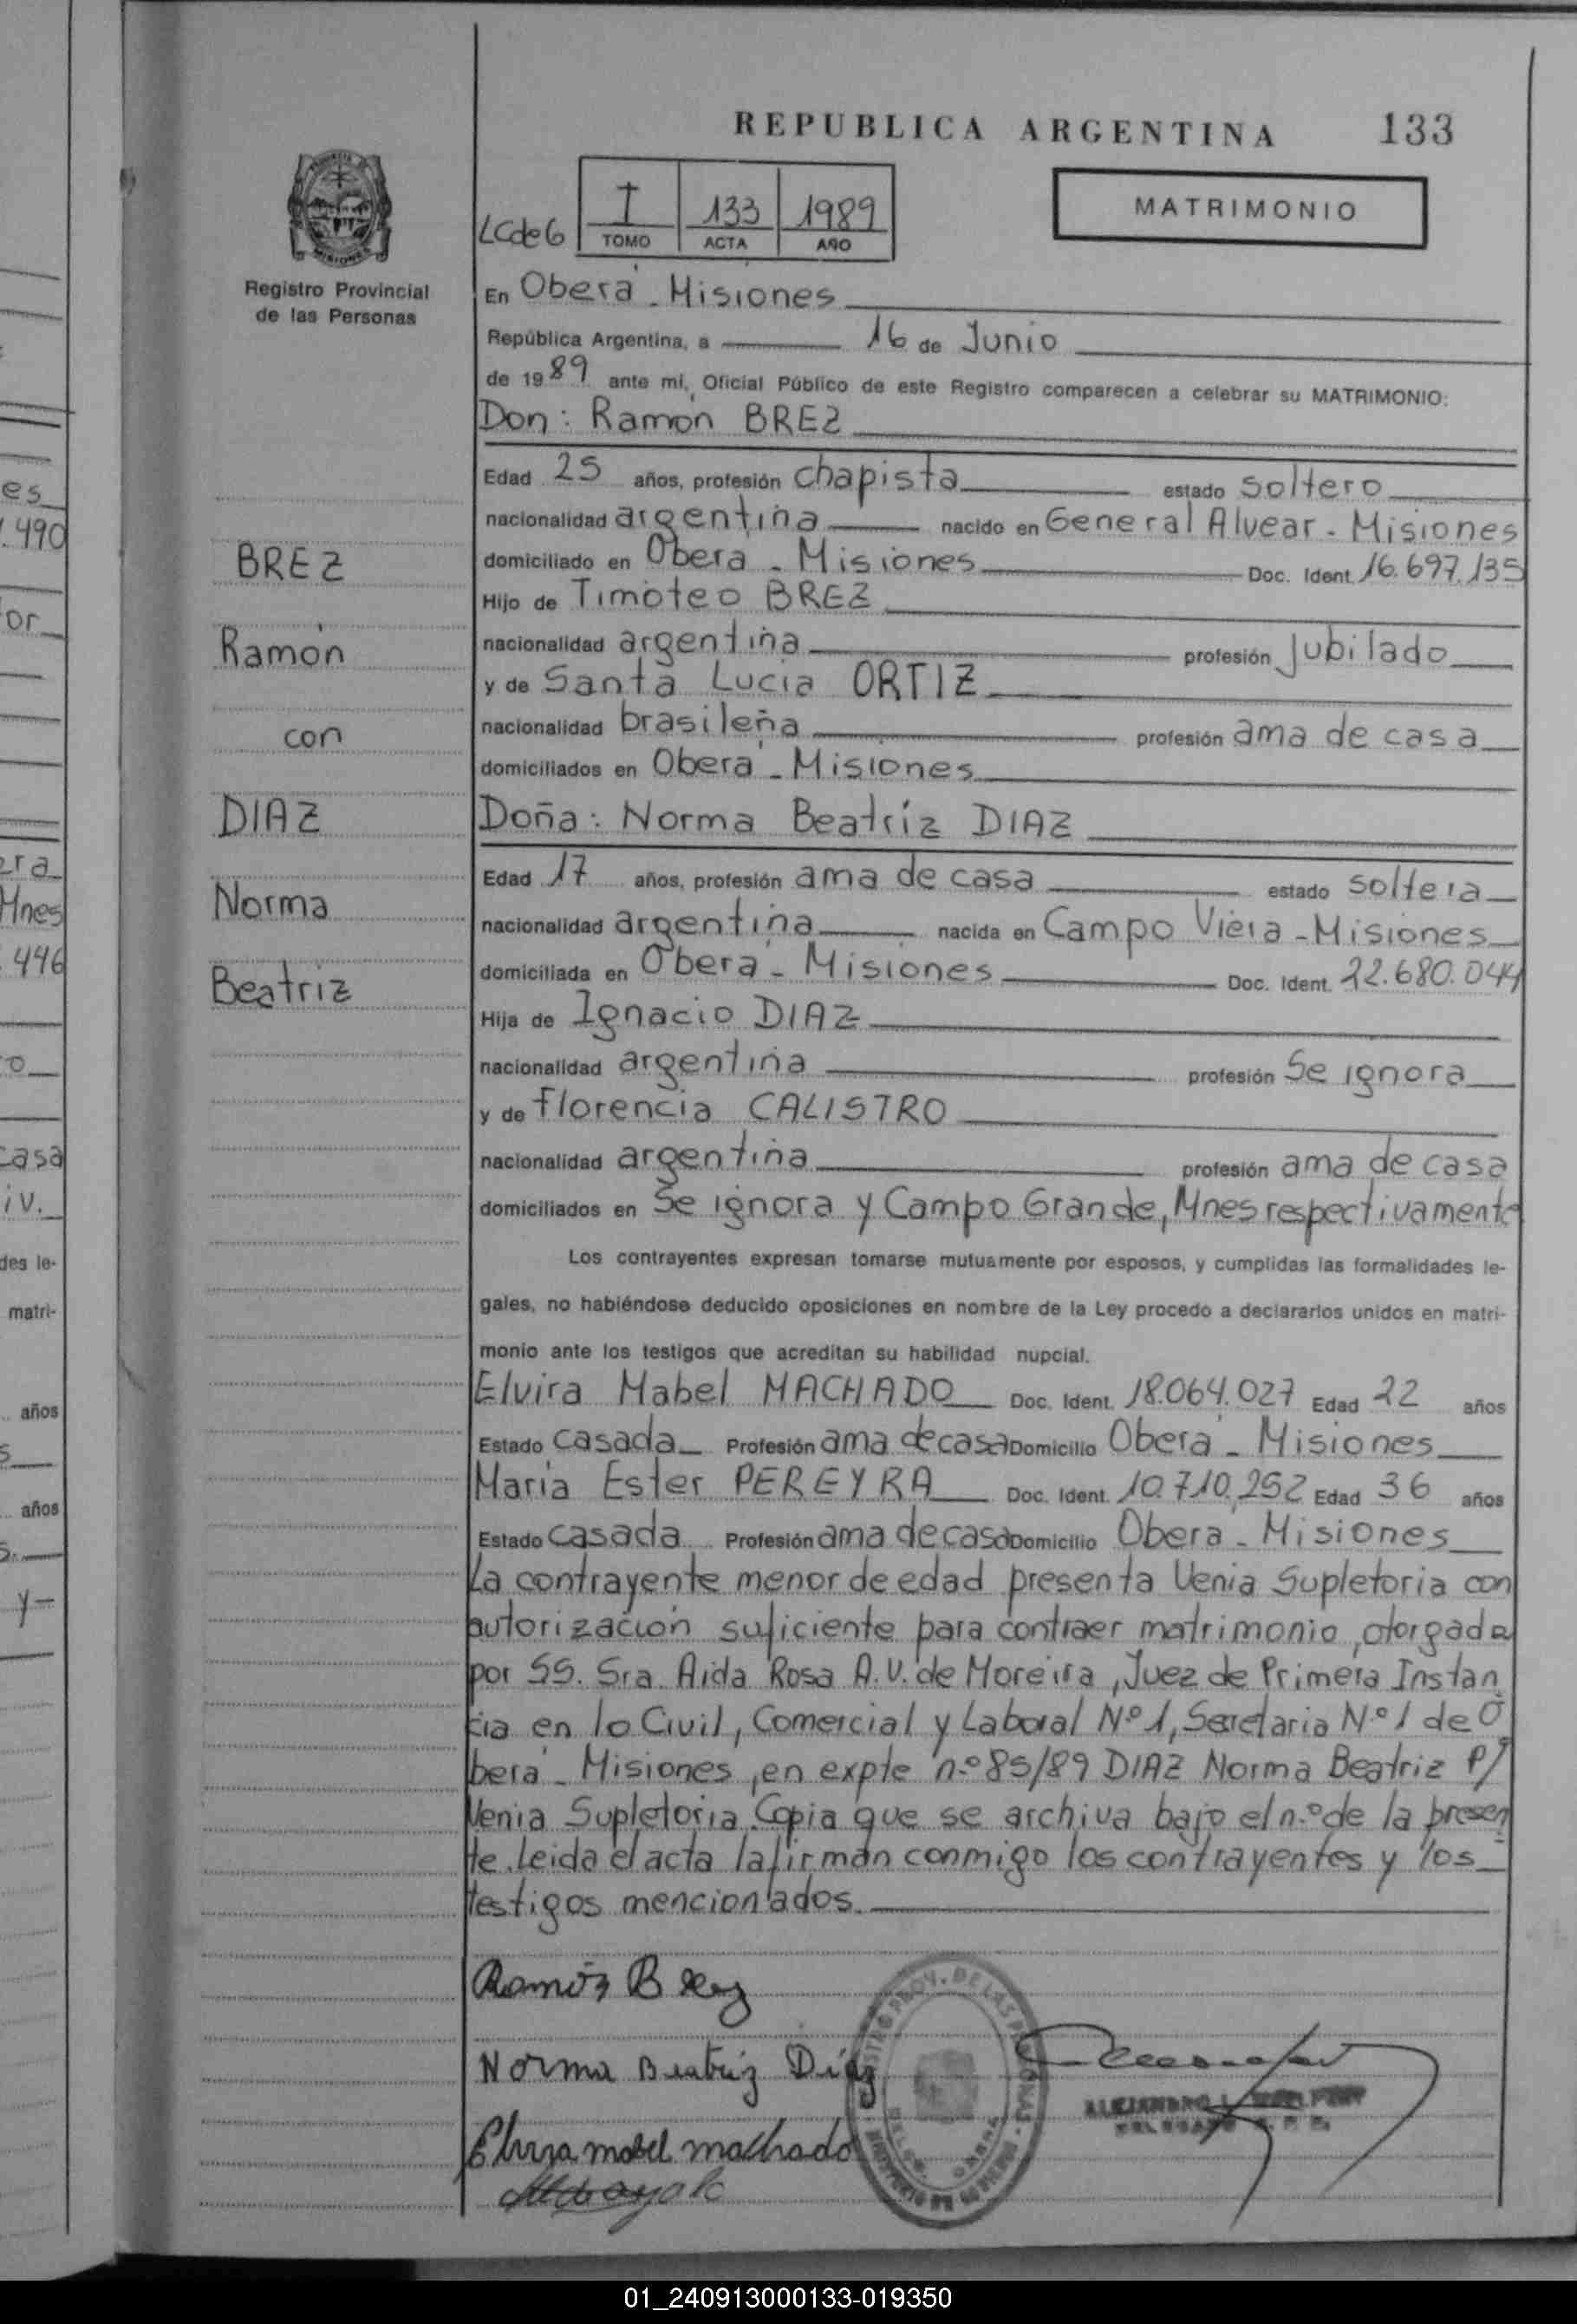 REPUBLICA ARGENTINA 133
MATRIMONIO
LCde6
I 133 1989
TOMO ACTA AÑO
Registro Provincial
de las Personas
En Oberá - Misiones
República Argentina, a 16 de Junio
de 1989 ante mí, Oficial Público de este Registro comparecen a celebrar su MATRIMONIO:
Don: Ramón BREZ
Edad 25 años, profesión chapista estado soltero
nacionalidad argentina nacido en General Alvear - Misiones
domiciliado en Oberá - Misiones Doc. Ident. 16.697.135
Hijo de Timoteo BREZ
nacionalidad argentina profesión jubilado
y de Santa Lucia ORTIZ
nacionalidad brasileña profesión ama de casa
domiciliados en Oberá - Misiones
Doña: Norma Beatríz DIAZ
Edad 17 años, profesión ama de casa estado soltera
nacionalidad argentina nacida en Campo Viera - Misiones
domiciliada en Oberá - Misiones Doc. Ident. 22.680.044
Hija de Ignacio DIAZ
nacionalidad argentina profesión Se ignora
y de Florencia CALISTRO
nacionalidad argentina profesión ama de casa
domiciliados en Se ignora y Campo Grande, Mnes respectivamente
BREZ
Ramón
con
DIAZ
Norma
Beatriz
Los contrayentes expresan tomarse mutuamente por esposos, y cumplidas las formalidades le-
gales, no habiéndose deducido oposiciones en nombre de la Ley procedo a declararlos unidos en matri-
monio ante los testigos que acreditan su habilidad nupcial.
Elvira Mabel MACHADO Doc. Ident. 18.064.027 Edad 22 años
Estado casada Profesión ama de casa Domicilio Oberá - Misiones
María Ester PEREYRA Doc. Ident. 10.710.252 Edad 36 años
Estado casada Profesión ama de casa Domicilio Oberá - Misiones
La contrayente menor de edad presenta Venia Supletoria con
autorización suficiente para contraer matrimonio, otorgada
por SS. Sra. Aida Rosa A.V. de Moreira, Juez de Primera Instan
cia en lo Civil, Comercial y Laboral Nº 1, Secretaria Nº 1 de O
berá - Misiones, en expte nº 85/89 DIAZ Norma Beatriz P/
Venia Supletoria. Copia que se archiva bajo el nº de la presen
te. Leida el acta la firman conmigo los contrayentes y los
testigos mencionados.
Ramón Brez
Norma Beatriz Díaz
Elvira mabel machado
ALEJANDRO
es
.490
or
era
Mnes
.446
o
casa
iv.
des le-
matri-
años
s
años
s.
y-
01_240913000133-019350